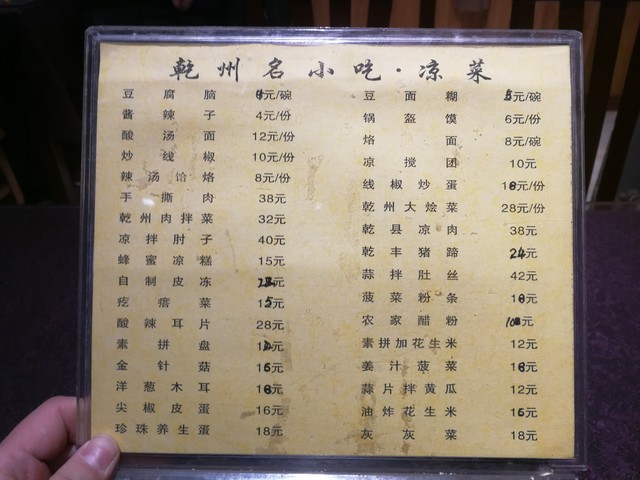 乾州名小吃·凉菜
豆腐脑 元/碗
酱辣子 4元/份
酸汤面 12元/份
炒线椒 10元/份
辣汤饸烙 8元/份
手撕肉 38元
乾州肉拌菜 32元
凉拌肘子 40元
蜂蜜凉糕 15元
自制皮冻 元
疙瘩菜 15元
酸辣耳片 28元
素拼盘 元
金针菇 16元
洋葱木耳 18元
尖椒皮蛋 16元
珍珠养生蛋 18元
豆面糊 5元/碗
锅盔馍 6元/份
烙面 8元/碗
凉搅团 10元
线椒炒蛋 18元/份
乾州大烩菜 28元/份
乾县凉肉 38元
乾丰猪蹄 24元
蒜拌肚丝 42元
菠菜粉条 18元
农家醋粉 元
素拼加花生米 12元
姜汁菠菜 18元
蒜片拌黄瓜 12元
油炸花生米 16元
灰灰菜 18元